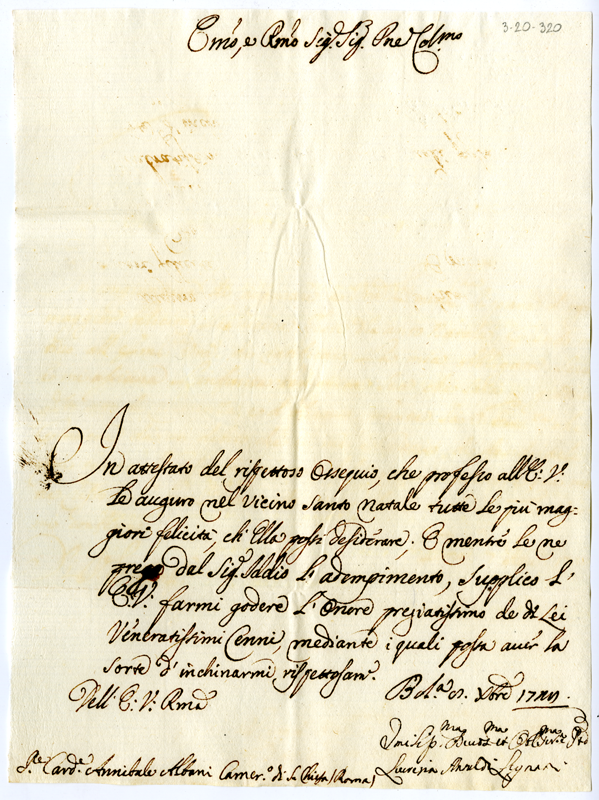 3-20-320
Emo, e Rmo Sig. Sig. Pne Colmo
In attestato del rispettoso Ossequio, che professo all'E: V:
Le auguro nel vicino Santo Natale tutte le più mag=
giori felicità, ch'Ella possa desiderare; E mentre le ne
prego dal Sig. Iddio l'adempimento, supplico l'
E: V: farmi godere l'Onore pregiatissimo de di Lei
Veneratissimi Cenni, mediante i quali possa aver la
sorte d'inchinarmi rispettosamte.
Dell'E: V: Rma
Bola Xbre
Lucrezia
Sre Carde Annibale Albani Camer.o di S. Chiesa (Roma)